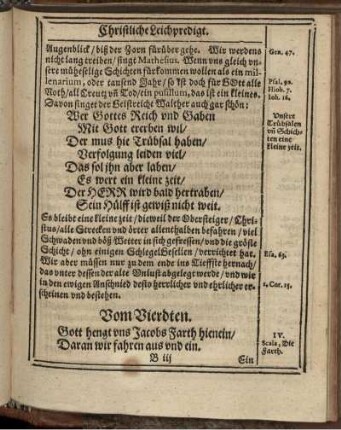 Christliche Leichpredigt.
Augenblick/ biß der Zorn fürüber gehe. Wir werdens
nicht lang treiben/ sagt Mathesius. Wenn vns gleich vn-
sere müheselige Schichten fürkommen wollen als ein mil-
lenarium, oder tausend Jahr/ so ist doch für GOtt alle
Noth/ all Creutz vñ Tod/ ein pusillum, das ist ein kleines.
Davon singet der Geistreiche Walther auch gar schön:
Wer Gottes Reich vnd Gaben
Mit Gott ererben wil/
Der mus hie Trübsal haben/
Verfolgung leiden viel/
Das sol ihn aber laben/
Es wert ein kleine zeit/
Der HERR wird bald hertraben/
Sein Hülff ist gewiß nicht weit.
Es bleibe eine kleine zeit/ dieweil der Obersteiger/ Chri-
stus/ alle Strecken vnd örter allenthalben befahren/ viel
Schwaden vnd böß Wetter in sich gefressen/ vnd die gröste
Schicht/ ohn einigen SchlegelGesellen/ verrichtet hat.
Wir aber müssen nur zu dem ende ins Tieffste hernach/
das vnter dessen der alte Vnlust abgelegt werde/ vnd wir
in den ewigen Anschnied desto herrlicher vnd ehrlicher er-
scheinen vnd bestehen.
Vom Vierdten.
Gott hengt vns Jacobs Farth hienein/
Daran wir fahren aus vnd ein.
B iij
Ein
Gen. 47.
Psal. 90.
Hiob. 7.
Joh. 16.
Vnser
Trübsalen
vñ Schich-
ten eine
kleine zeit.
Esa. 63.
1. Cor. 15.
IV.
Scala, Die
Farth.